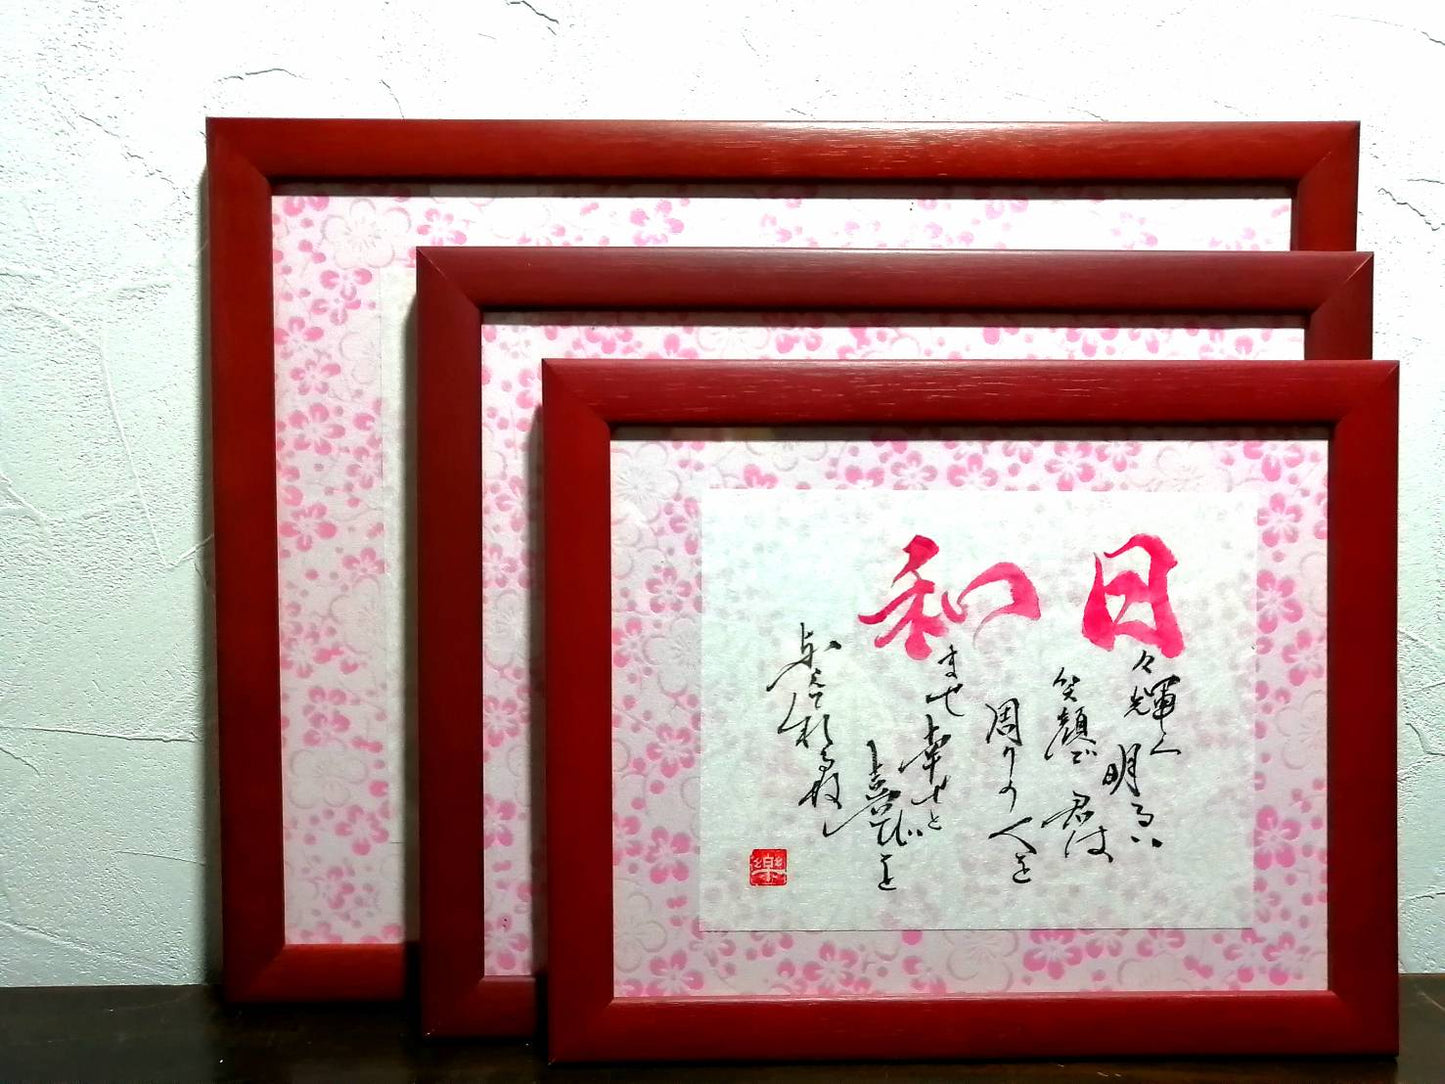 日々輝く明るい
笑顔で君は
周りの人を
和ませ幸せと
喜びを
与えて
樂